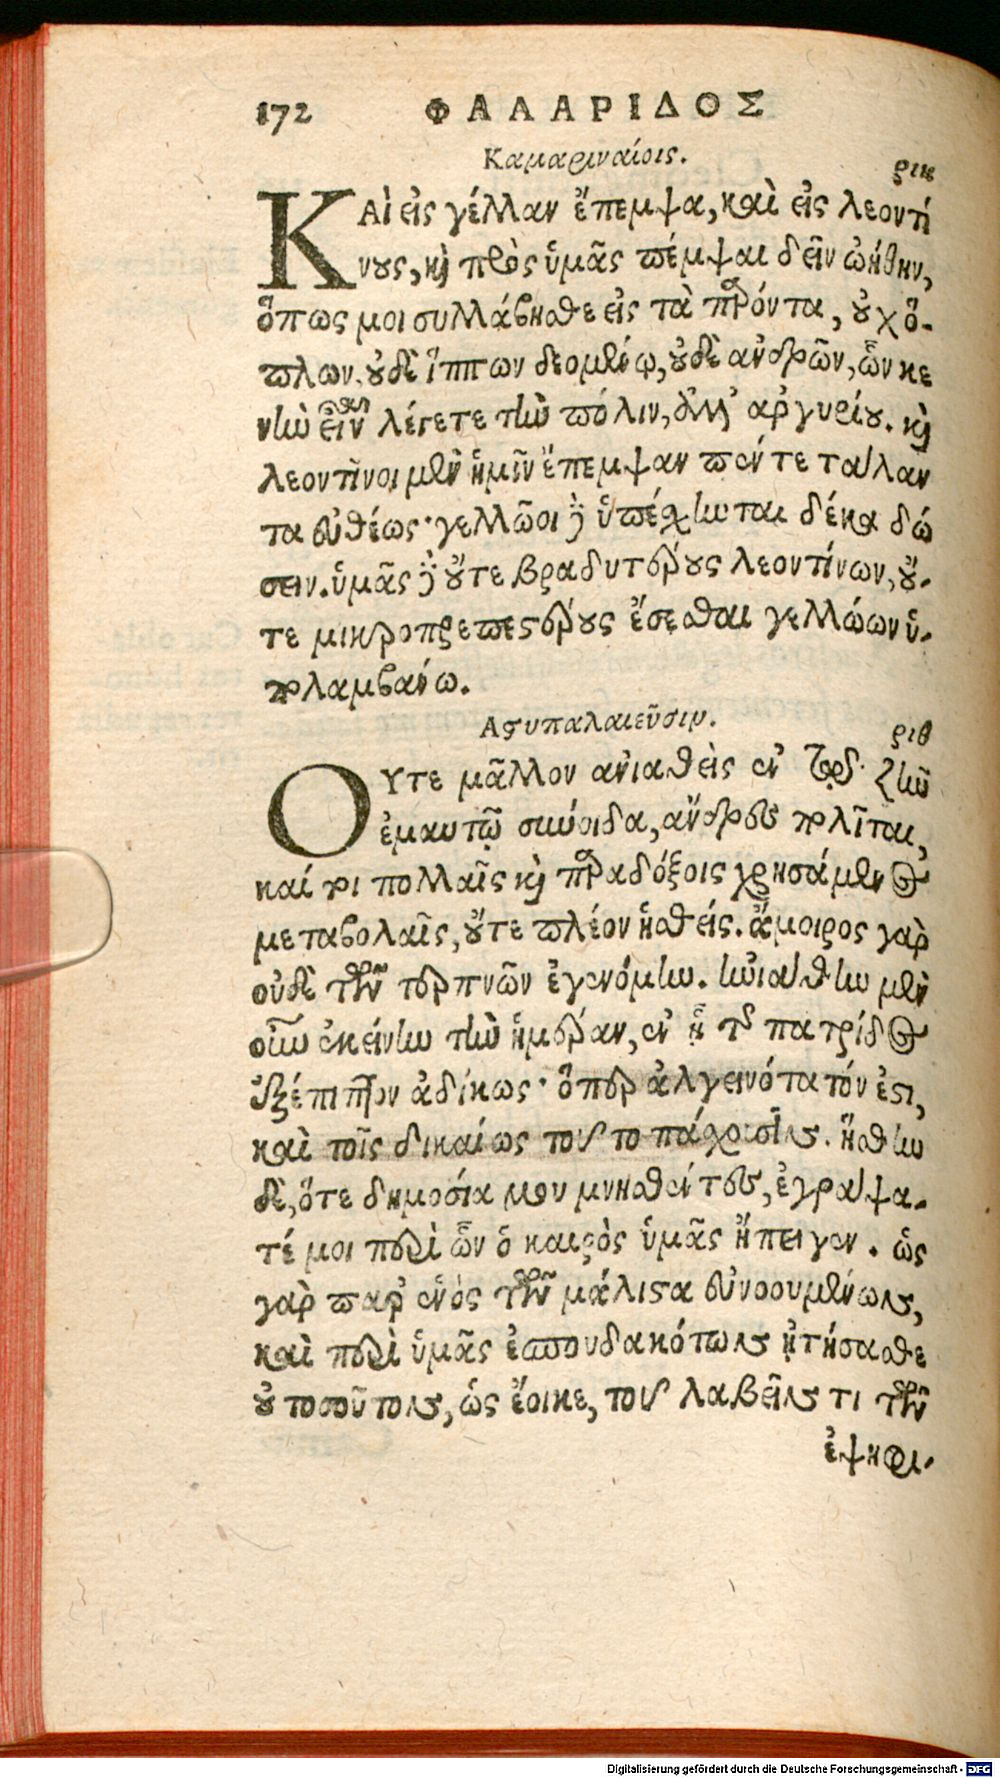 172 ΦΑΛΑΡΙΔΟΣ
Καμαριναίοις. ριη
ΚΑὶ εἰς γέλλαν ἔπεμψα, καὶ εἰς λεοντί
νους, καὶ πρὸς ὑμᾶς πέμψαι δεῖν ᾠήθην,
ὅπως μοι συλλάβησθε εἰς τὰ παρόντα, οὐχ ὅ-
πλων, οὐδὲ ἵππων δεομένῳ, οὐδὲ ἀνδρῶν, ὧν κε
νὴν εἶναι λέγετε τὴν πόλιν, ἀλλ' ἀργυρίου. καὶ
λεοντῖνοι μὲν ἡμῖν ἔπεμψαν πέντε τάλαν
τα εὐθέως· γελλῶοι δὲ ὑπέσχηνται δέκα δώ
σειν. ὑμᾶς δὲ οὔτε βραδυτέρους λεοντίνων, οὔ-
τε μικροπρεπεστέρους ἔσεσθαι γελλώων ὑ-
πολαμβάνω.
Αστυπαλαιεῦσιν. ριθ
ΟΥτε μᾶλλον ἀνιαθεὶς ἐν τῷδε ζῆν
ἐμαυτῷ σύνοιδα, ἄνδρες πολῖται,
καί τοι πολλαῖς καὶ παραδόξοις χρησάμενος
μεταβολαῖς, οὔτε πλέον ἡσθείς. ἄμοιρος γὰρ
οὐδὲ τῶν τερπνῶν ἐγενόμην. ἠνιάθην μὲν
οὖν ἐκείνην τὴν ἡμέραν, ἐν ᾗ τῆς πατρίδος
ἐξέπιπτον ἀδίκως· ὅπερ ἀλγεινότατόν ἐστι,
καὶ τοῖς δικαίως τοῦτο πάσχουσιν. ἥσθην
δὲ, ὅτε δημοσίᾳ μου μνησθέντες, ἐγράψα-
τέ μοι περὶ ὧν ὁ καιρὸς ὑμᾶς ἤπειγεν. ὡς
γὰρ παρ' ἑνὸς τῶν μάλιστα εὐνοουμένων,
καὶ περὶ ὑμᾶς ἐσπουδακότων ᾐτήσασθε
οὐ τοσοῦτον, ὡς ἔοικε, τοῦ λαβεῖν τι τῶν
ἐψηφι-
Digitalisierung gefördert durch die Deutsche Forschungsgemeinschaft - DFG